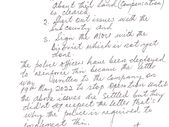 about their land (Compensation)
is cleared.
2. Sort out issues with the
Sub county and
3. Sign the MOU with the
District which is not yet
done.
The police officers have been deployed
to reinforce this because the letter
written to the company on
19th May 2022 to stop operation until
the above issues are settled but they
did not respect the letter that's
why the police is required to
implement this.